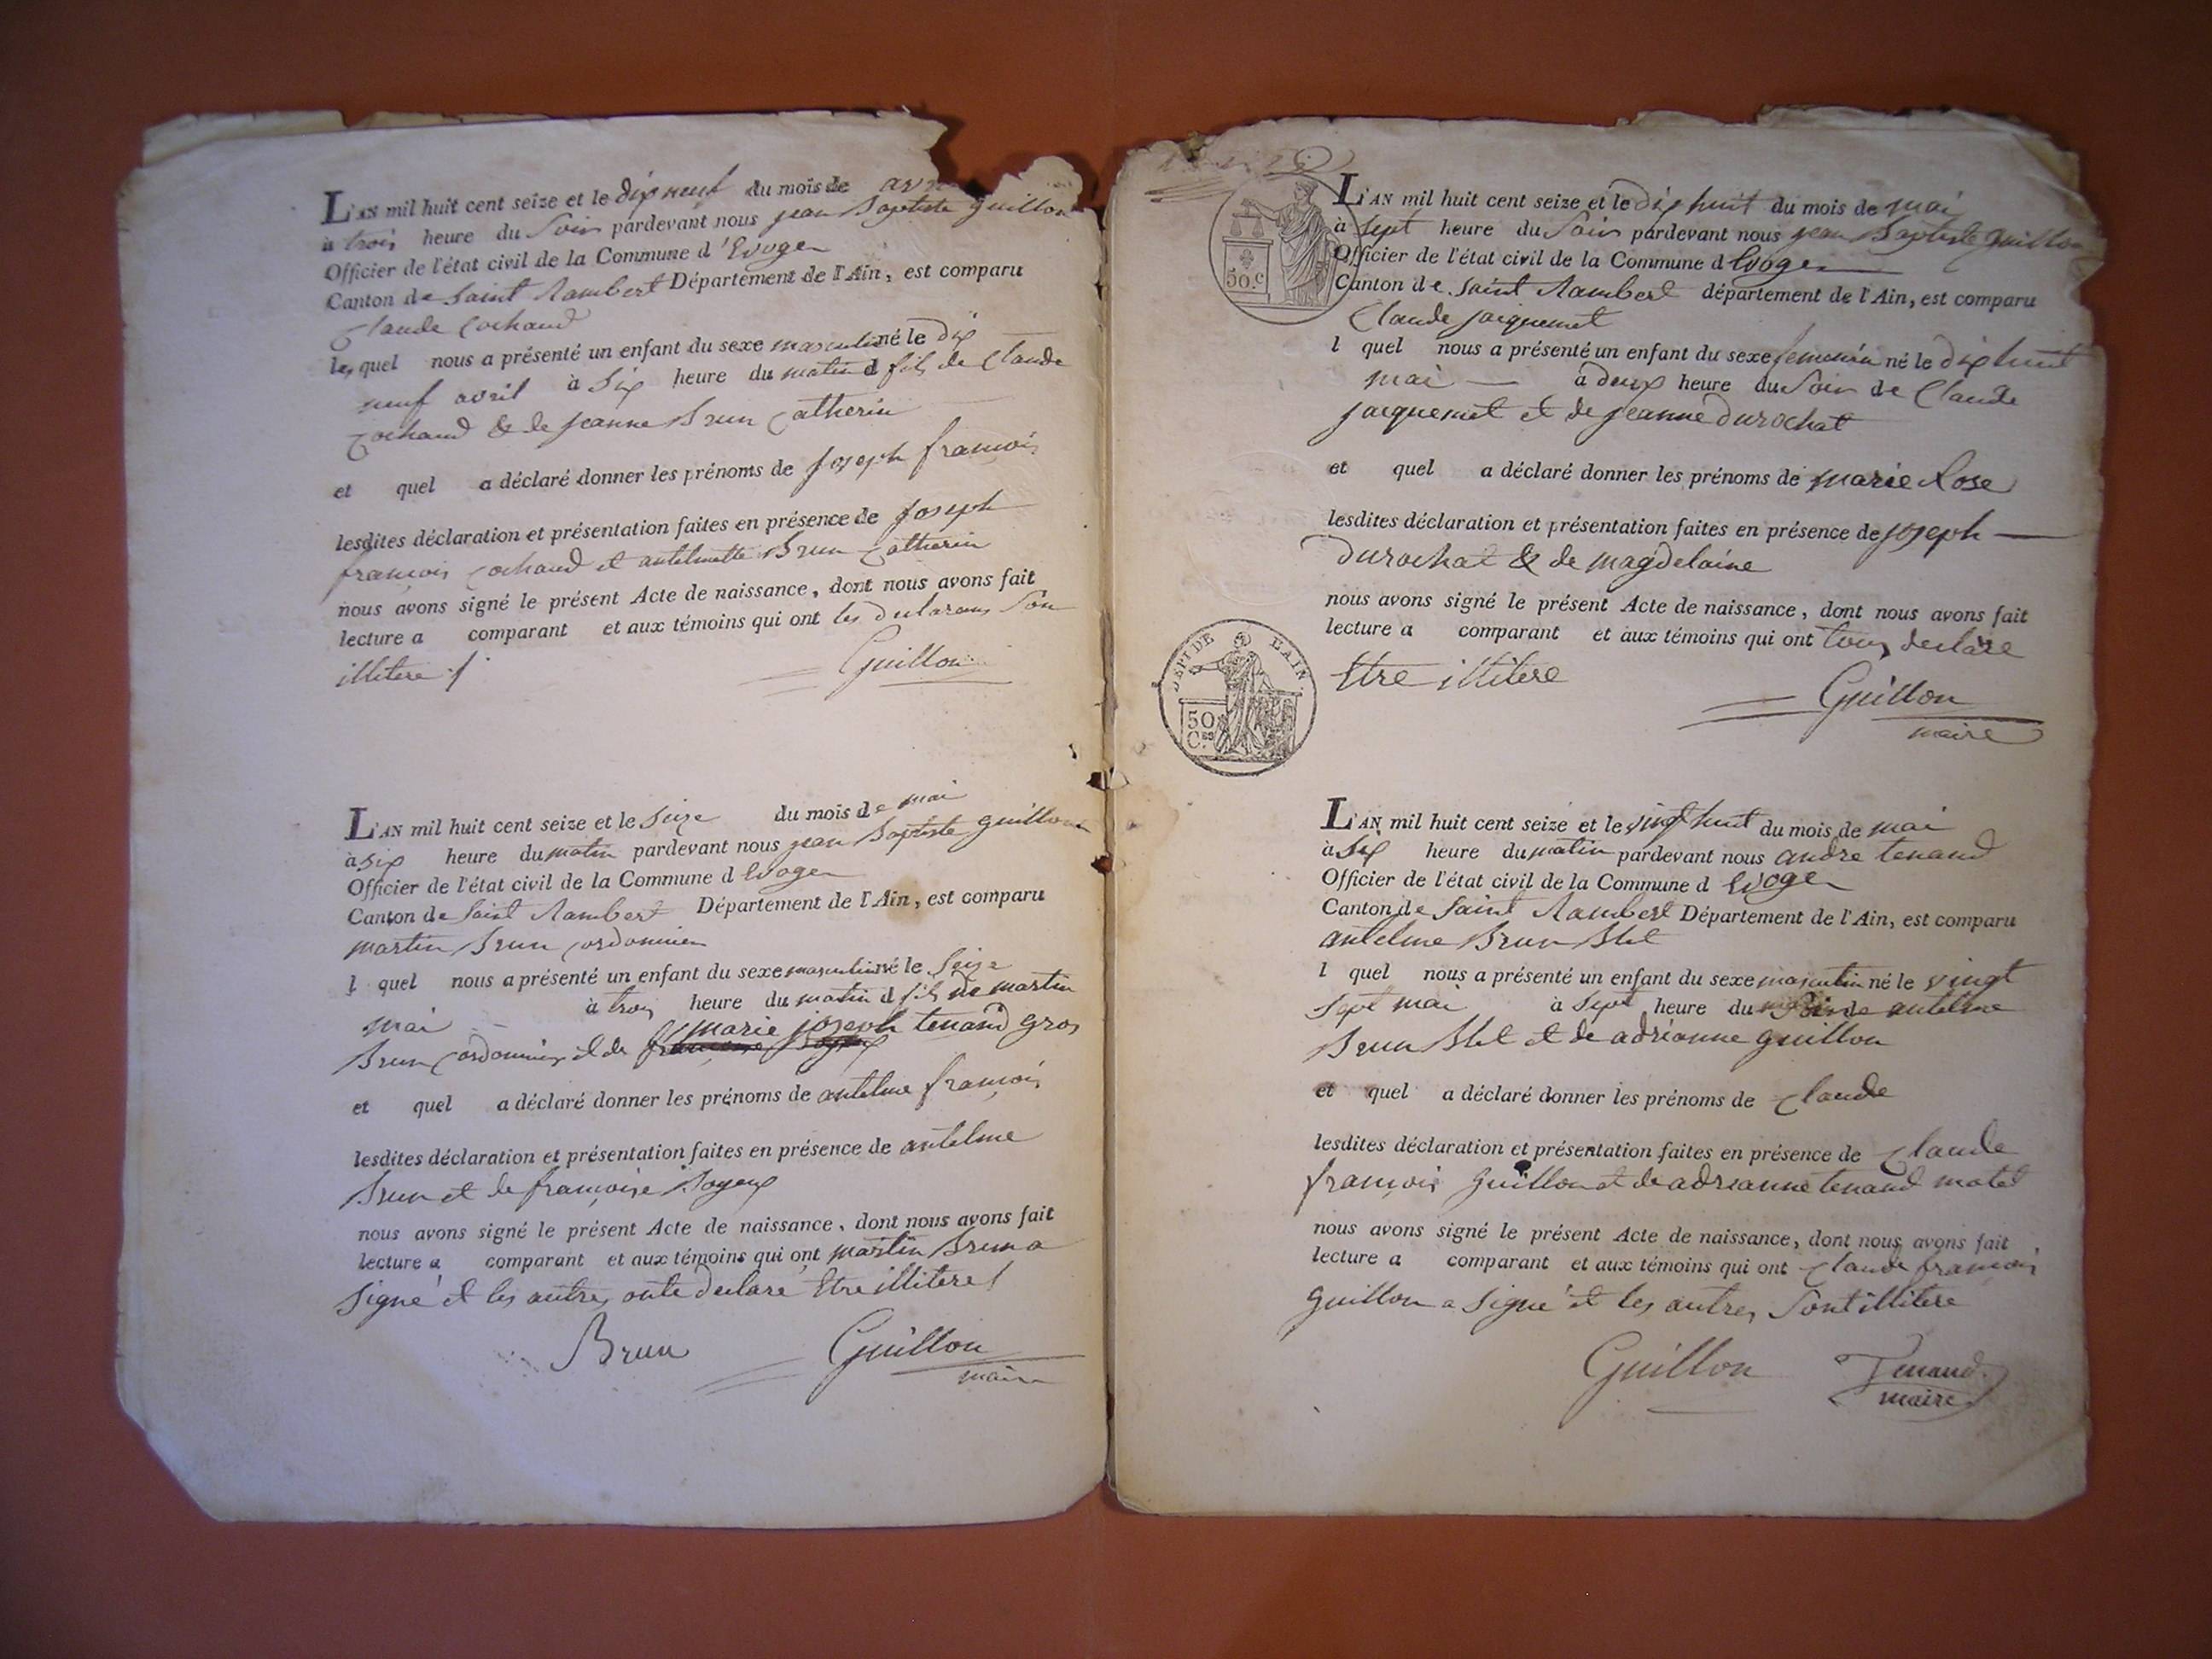 L'AN mil huit cent seize et le dix neuf du mois de avr
à trois heure du Soir pardevant nous jean Baptiste guillon
Officier de l'état civil de la Commune d'Evoges
Canton de Saint Rambert Département de l'Ain, est comparu
Claude Cochaud
lesquel nous a présenté un enfant du sexe masculin né le dix
neuf avril à Six heure du matin d fils de Claude
Cochaud & de jeanne Brun Catherin
et quel a déclaré donner les prénoms de joseph françois
lesdites déclaration et présentation faites en présence de joseph
françois Cochaud et antelmette Brun Catherin
nous avons signé le présent Acte de naissance, dont nous avons fait
lecture a comparant et aux témoins qui ont les declarans Son
illitere
Guillon
L'AN mil huit cent seize et le Seize du mois de mai
à Six heure du matin pardevant nous jean Baptiste guillon
Officier de l'état civil de la Commune d Evoges
Canton de Saint Rambert Département de l'Ain, est comparu
martin Brun Cordonnier
l quel nous a présenté un enfant du sexe masculin né le Seize
mai à trois heure du matin d fils de martin
Brun Cordonnier et de marie joseph tenand gros
et quel a déclaré donner les prénoms de antelme françois
lesdites déclaration et présentation faites en présence de antelme
Brun et de françoise Royeux
nous avons signé le présent Acte de naissance, dont nous avons fait
lecture a comparant et aux témoins qui ont martin Brun a
Signé et les autres onte declare Etre illitere
Brun Guillon
maire
50.c
L'AN mil huit cent seize et le dix huit du mois de mai
à Sept heure du Soir pardevant nous jean Baptiste guillon
Officier de l'état civil de la Commune d Evoges
Canton de Saint Rambert département de l'Ain, est comparu
Claude jacquemet
l quel nous a présenté un enfant du sexe feminin né le dix huit
mai à deux heure du Soir de Claude
jacquemet et de jeanne durochat
et quel a déclaré donner les prénoms de marie Rose
lesdites déclaration et présentation faites en présence de joseph
durochat & de magdelaine
nous avons signé le présent Acte de naissance, dont nous avons fait
lecture a comparant et aux témoins qui ont tous declare
Etre illitere
DEPT DE L'AIN
50
C.es
Guillon
maire
L'AN mil huit cent seize et le vingt huit du mois de mai
à Six heure du matin pardevant nous andre tenand
Officier de l'état civil de la Commune d Evoges
Canton de Saint Rambert Département de l'Ain, est comparu
antelme Brun
l quel nous a présenté un enfant du sexe masculin né le vingt
Sept mai à Sept heure du de antelme
Brun et de adrianne guillon
et quel a déclaré donner les prénoms de Claude
lesdites déclaration et présentation faites en présence de Claude
françois guillon et de adrianne tenand matel
nous avons signé le présent Acte de naissance, dont nous avons fait
lecture a comparant et aux témoins qui ont Claude françois
guillon a Signé et les autres Sont illitere
Guillon Tenand
maire